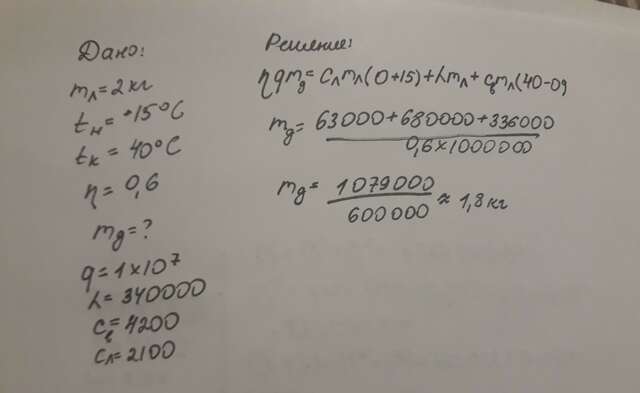 Дано:
mл=2кг
tн=-15°C
tк=40°C
η=0,6
mд=?
q=1×10⁷
λ=340000
cв=4200
cл=2100
Решение:
ηqmд=Cлmл(0+15)+λmл+cвmл(40-0)
mд=63000+680000+336000
0,6×1000000
mд=1079000
600000
≈1,8кг